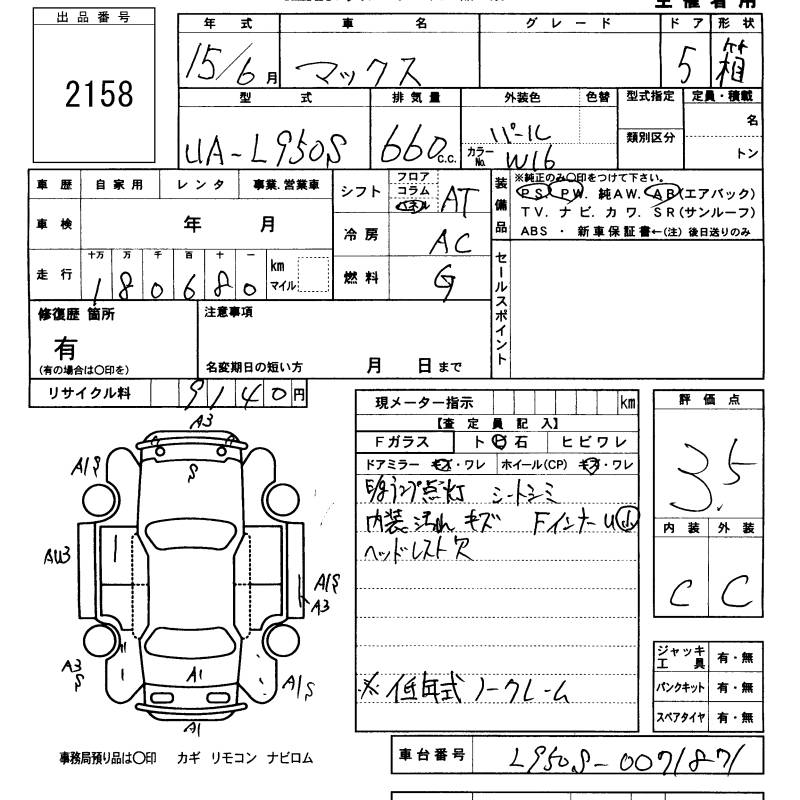 出品番号
2158
年式 車名 グレード ドア 形状
15/6月 マックス 5 箱
型式 排気量 外装色 色替 型式指定 定員・積載
UA-L950S 660c.c. パール 名
カラーNo. W16 類別区分 トン
車歴 自家用 レンタ 事業.営業車
車検 年 月
走行 十万 万 千 百 十 一 km マイル
180680
シフト フロア コラム パネル AT
冷房 AC
燃料 G
装備品 ※純正のみ〇印をつけて下さい。
PS. PW. 純AW. AB(エアバック)
TV. ナビ. カワ. SR(サンルーフ)
ABS ・ 新車保証書←(注) 後日送りのみ
セールスポイント
修復歴 箇所
有
(有の場合は〇印を)
注意事項
名変期日の短い方 月 日まで
リサイクル料 9140円
現メーター指示 km
【査定員記入】
Fガラス ト ヒ 石 ヒビワレ
ドアミラー キズ・ワレ ホイール(CP) キズ・ワレ
シートシミ
内装汚れ キズ FインナーU小
ヘッドレスト欠
※低年式 ノークレーム
評価点
3.5
内装 外装
C C
ジャッキ工具 有・無
パンクキット 有・無
スペアタイヤ 有・無
A3
S
A1S
AU3
A1S
A3
A3
S
A1
A1S
A1
事務局預り品は〇印 カギ リモコン ナビロム
車台番号 L950S-0071871